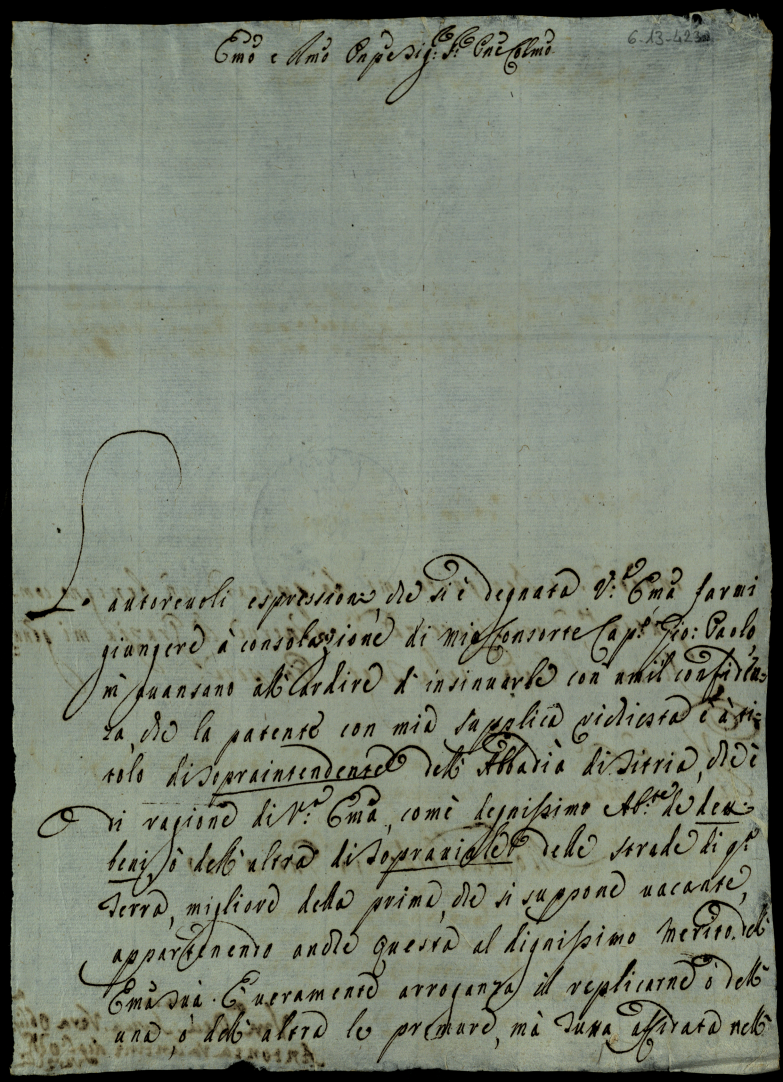 6-13-423
Emo e Rmo Pnpe Sig: Sr Pne Colmo
Le autorevoli espressioni, che si è degnata V:a Ema farmi
giungere à consolazione di mio Consorte Capn Gio: Paolo,
m'avansano all'ardire d'insinuarle con umil confiden-
za, che la patente con mia supplica richiesta è à ti-
tolo di Sopraintendente dell'Abbadia di Sitria, che è
di ragione di V:a Ema, come degnissimo Ab:te de
beni, ò dell'altra di delle strade di qta
Terra, migliore della prima, che si suppone vacante,
appartenendo anche questa al dignissimo merito dell'
Ema Sua. È veramente arroganza il replicarne ò dell'
una, ò dell'altra le premure, mà tutta affidata nell'